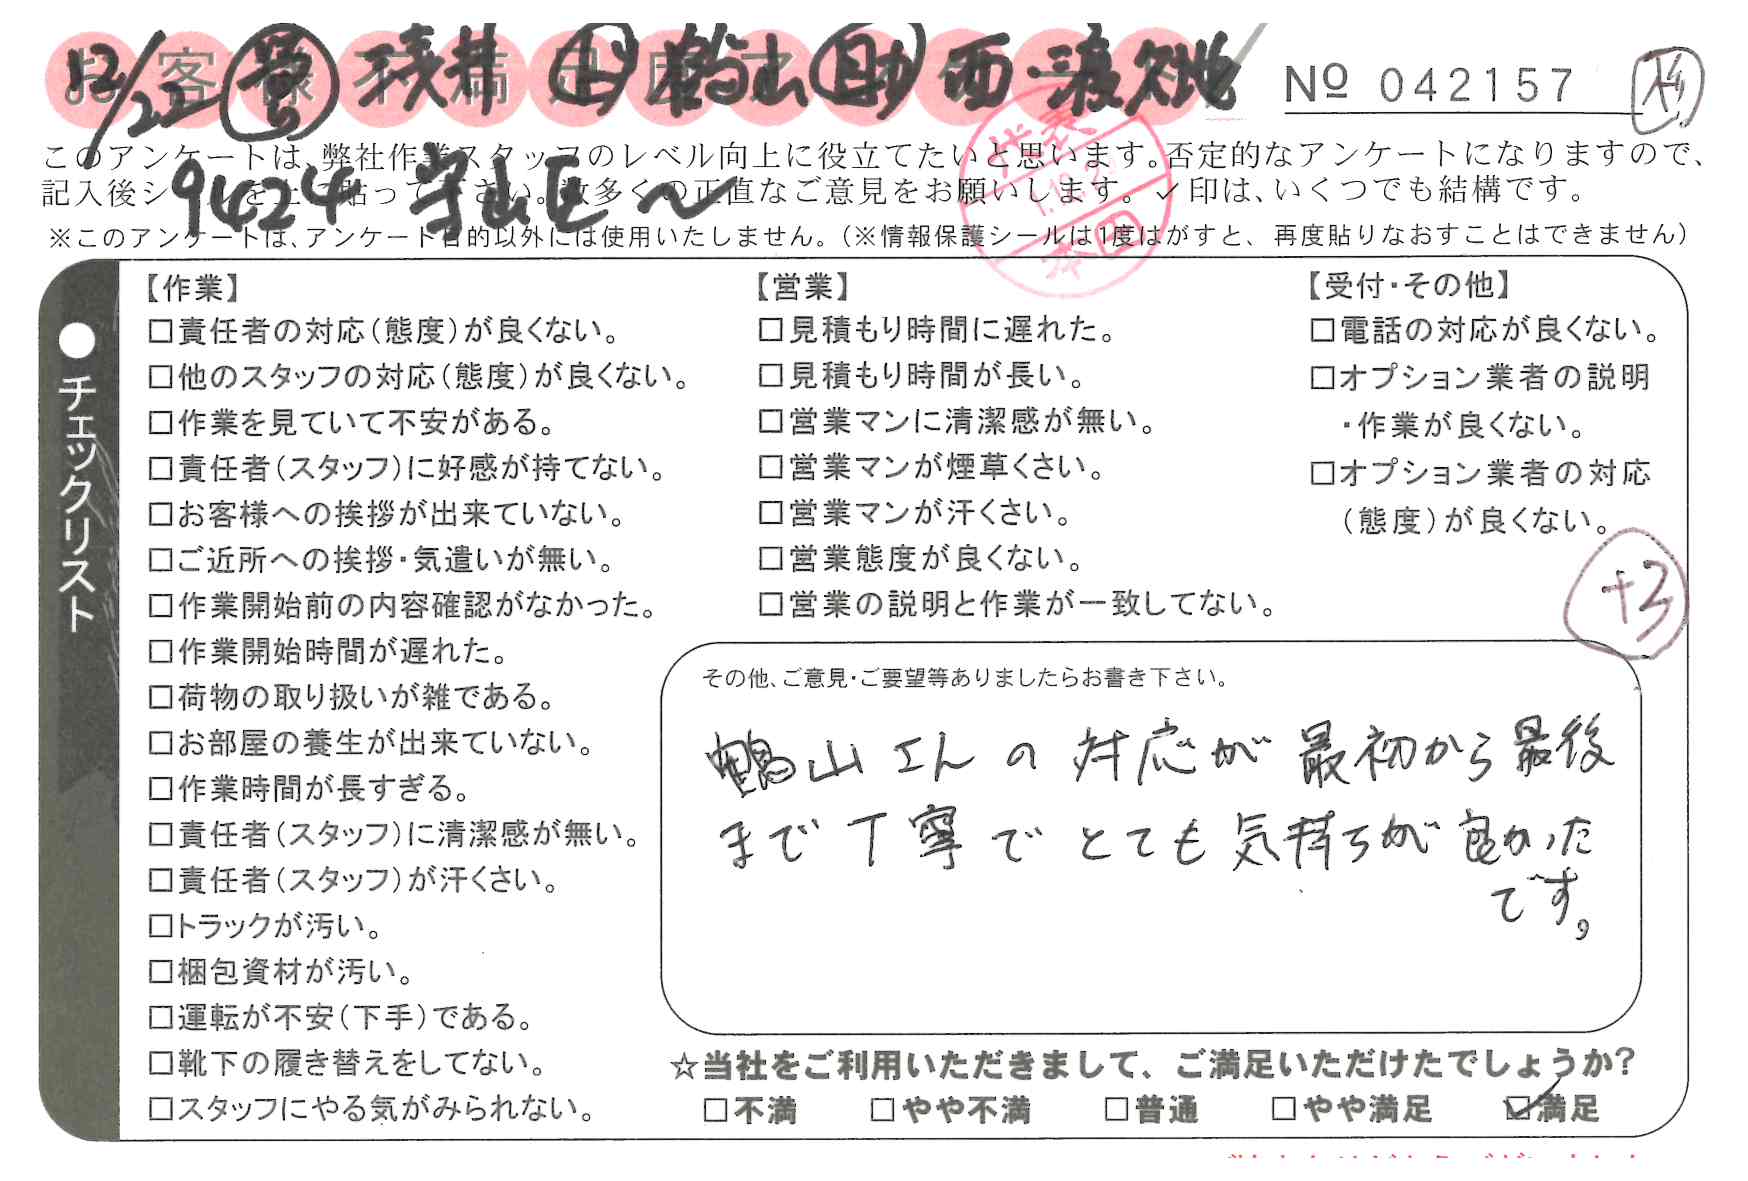 12/22 営 浅井 山 鶴山 助 西・渡久地
お客様不満足度アンケート
No 042157
9424 守山区〜
このアンケートは、弊社作業スタッフのレベル向上に役立てたいと思います。否定的なアンケートになりますので、
記入後シールを上に貼って下さい。数多くの正直なご意見をお願いします。✓印は、いくつでも結構です。
※このアンケートは、アンケート目的以外には使用いたしません。(※情報保護シールは1度はがすと、再度貼りなおすことはできません)
代表
本田
●チェックリスト
【作業】
□責任者の対応(態度)が良くない。
□他のスタッフの対応(態度)が良くない。
□作業を見ていて不安がある。
□責任者(スタッフ)に好感が持てない。
□お客様への挨拶が出来ていない。
□ご近所への挨拶・気遣いが無い。
□作業開始前の内容確認がなかった。
□作業開始時間が遅れた。
□荷物の取り扱いが雑である。
□お部屋の養生が出来ていない。
□作業時間が長すぎる。
□責任者(スタッフ)に清潔感が無い。
□責任者(スタッフ)が汗くさい。
□トラックが汚い。
□梱包資材が汚い。
□運転が不安(下手)である。
□靴下の履き替えをしてない。
□スタッフにやる気がみられない。
【営業】
□見積もり時間に遅れた。
□見積もり時間が長い。
□営業マンに清潔感が無い。
□営業マンが煙草くさい。
□営業マンが汗くさい。
□営業態度が良くない。
□営業の説明と作業が一致してない。
【受付・その他】
□電話の対応が良くない。
□オプション業者の説明
・作業が良くない。
□オプション業者の対応
(態度)が良くない。
+3
その他、ご意見・ご要望等ありましたらお書き下さい。
鶴山さんの対応が最初から最後
まで丁寧でとても気持ちが良かった
です。
☆当社をご利用いただきまして、ご満足いただけたでしょうか?
□不満 □やや不満 □普通 □やや満足 ☑満足